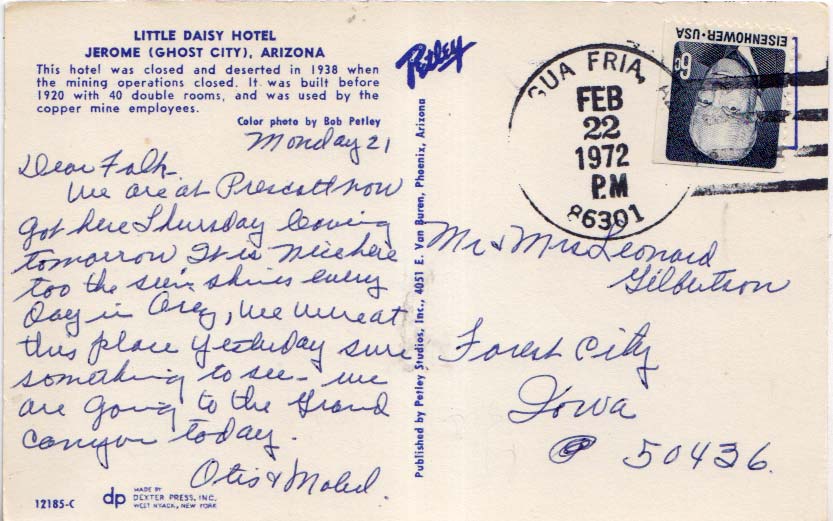 LITTLE DAISY HOTEL
JEROME (GHOST CITY), ARIZONA
This hotel was closed and deserted in 1938 when
the mining operations closed. It was built before
1920 with 40 double rooms, and was used by the
copper mine employees.
Color photo by Bob Petley
Monday 21
Dear Folk-
We are at Prescott now
got here Thursday leaving
tomorrow It is nice here
too the sun shines every
Day in Arez, we were at
this place yesterday sure
something to see - we
are going to the Grand
canyon today.
Otis & Mabel.
12185-C
dp
MADE BY
DEXTER PRESS, INC.
WEST NYACK, NEW YORK
Petley
Published by Petley Studios, Inc., 4051 E. Van Buren, Phoenix, Arizona
GUA FRIA,
FEB
22
1972
P.M
86301
EISENHOWER·USA
6c
Mr & Mrs Leonard
Gilbertson
Forest City
Iowa
50436.